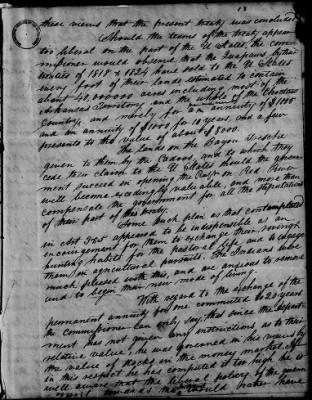 13
these views that the present treaty was concluded
Should the terms of the treaty appear
too liberal on the part of the U States, the com
missioner would observe that the Quapaws by their
treaties of 1818 & 1824 have sold to the U States
every foot of their lands estimated to contain
about 48,000,000 acres including most of the
Arkansas Territory and the whole of the Choctaw
Country, and merely for annuity of $1100
and an annuity of $1000 for 10 years, and a few
presents to the value of about $8000.
The lands on the Bayou Treache
given to them by the Cadoes, and to which they
cede their claim to the U States should the govern
ment succeed in opening the Raft on Red River
will become exceedingly valuable, and more than
compensate the government for all the stipulations
of their part of this treaty.
Some such plan as that contemplated
in Art 3rd appeared to be indispensible as an
encouragement for them to exchange their
hunting habits for the pastoral life and to engage
them in agricultural pursuits. The Indians were
much pleased with this, and are anxious to remove
and to begin their new mode of living.
With regard to the exchange of the
permanent annuity for one commuted to 20 years
the commissioner can only say, that since the depart
ment has not given any instructions as to their
relative value, he was governed in his views by
the value of in the money market. If
in this respect he has computed it too high he is
well aware that the liberal policy of the govern
ment towards would rather have